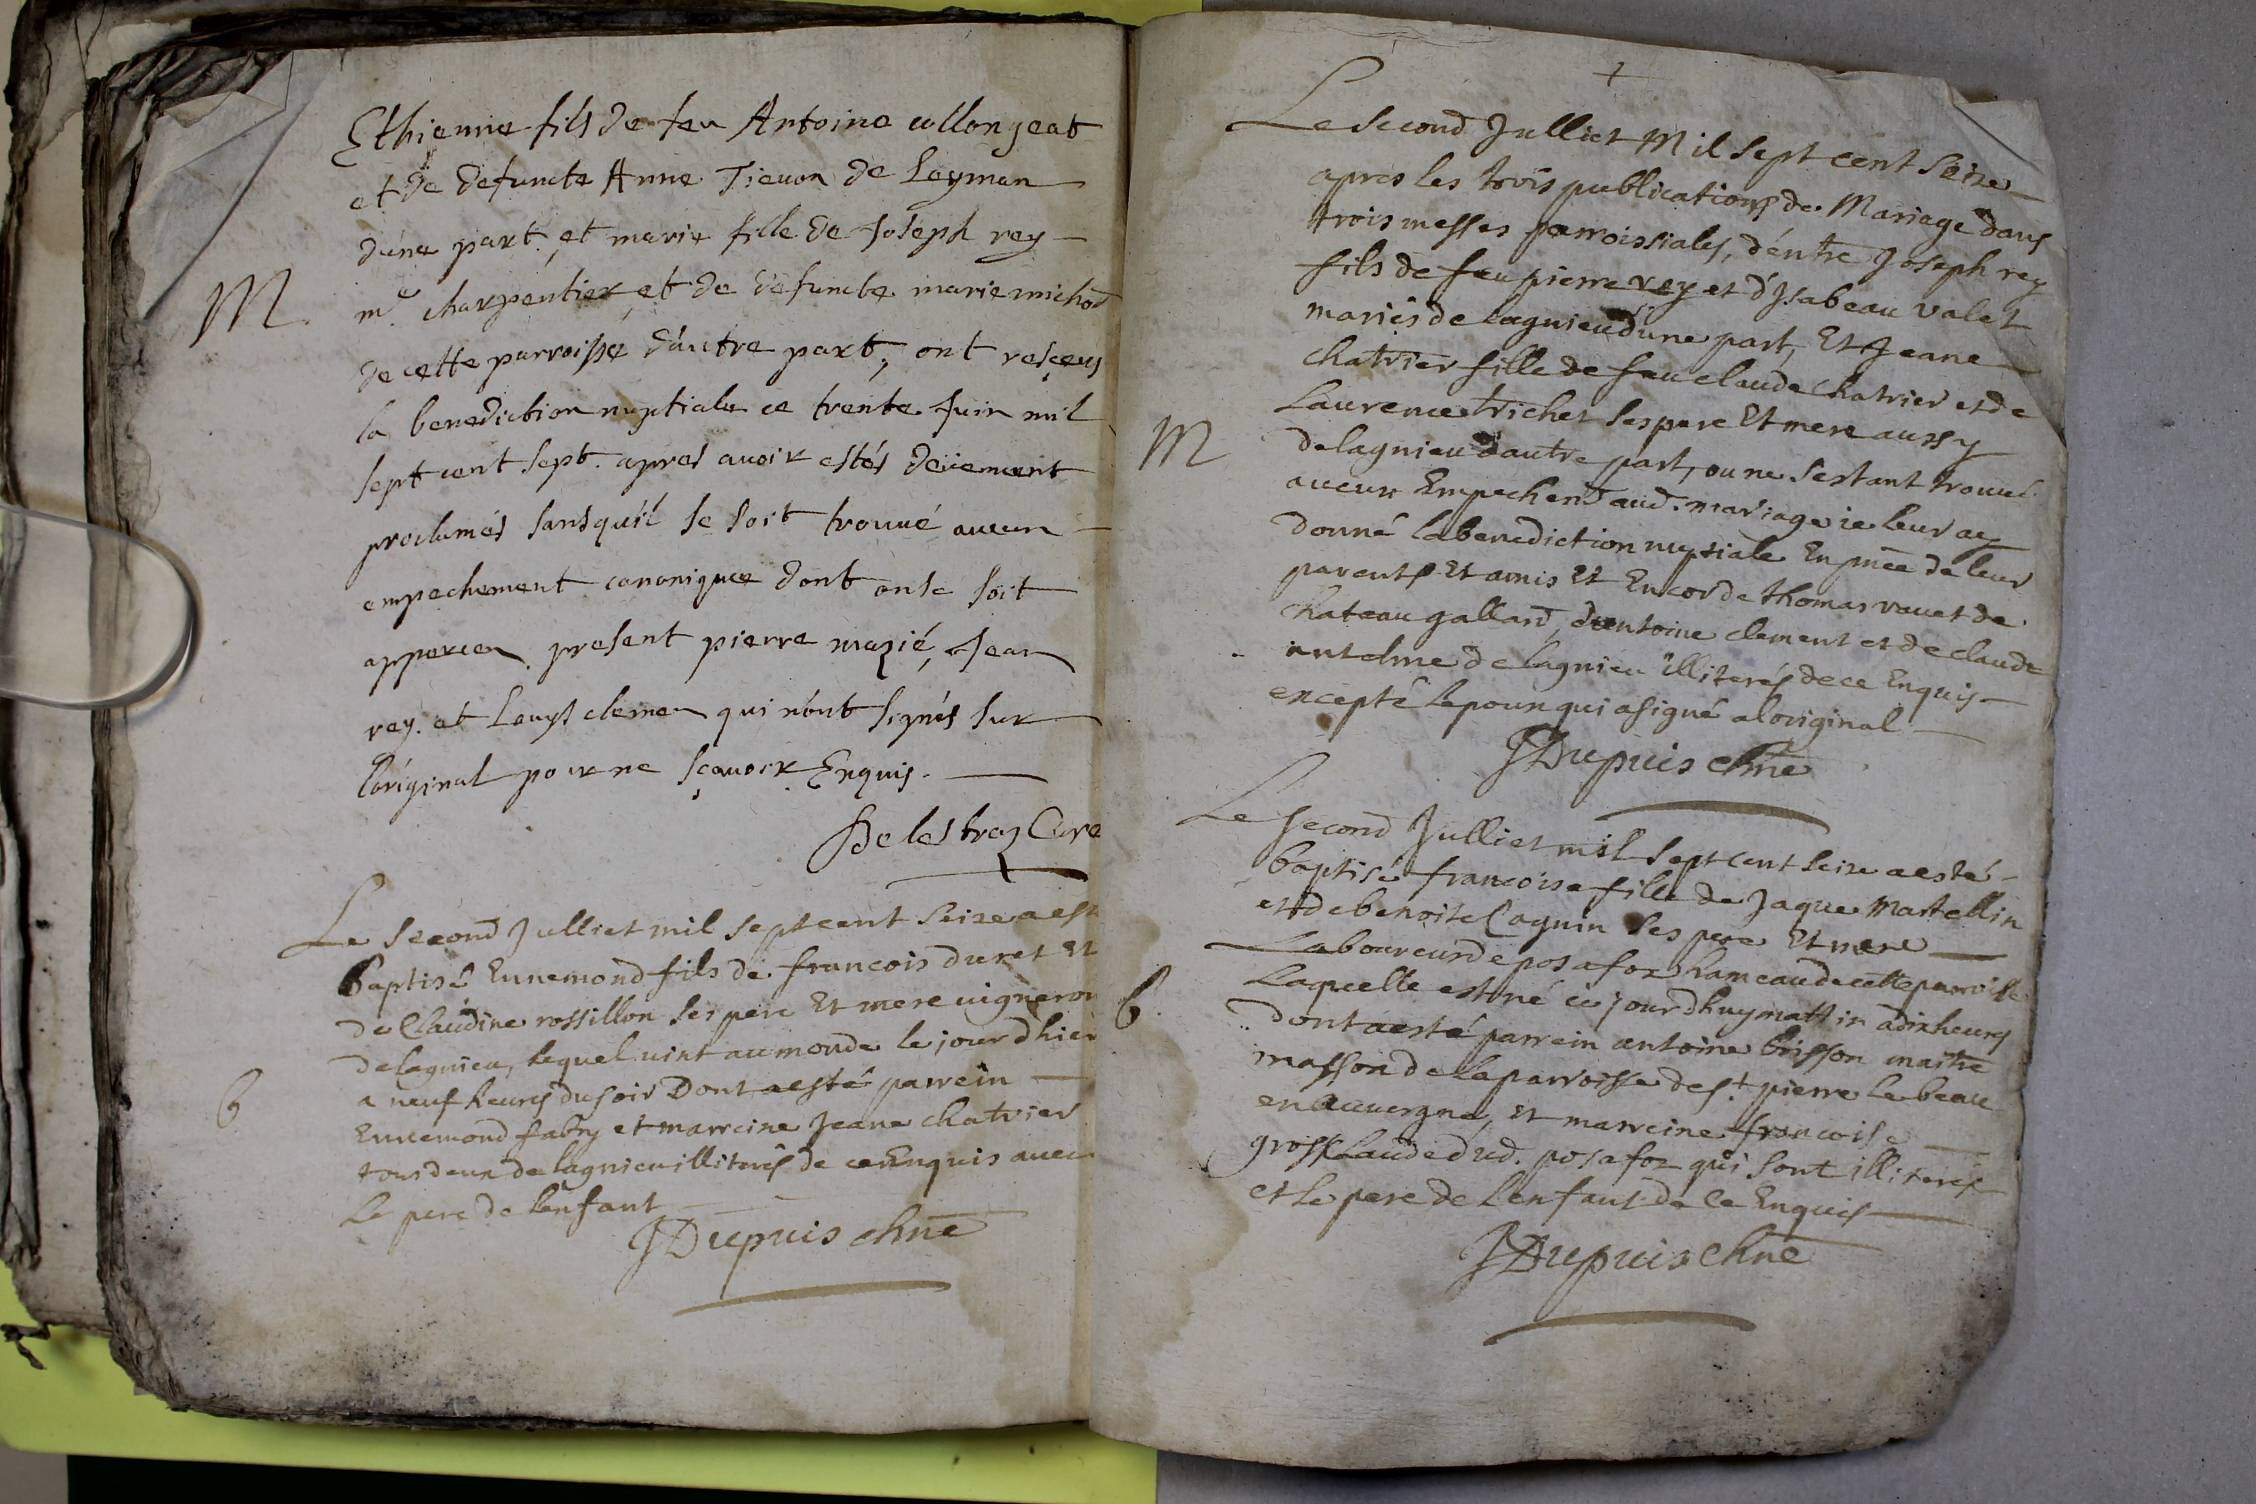 Ethienne fils de feu Antoine collongeat
et de defuncte Anne Tievon de Leyman
dúne part, et marie fille de Joseph rey
M. mͤ. charpentier, et de defuncte marie michod
de cette parroisse dáutre part, ont resçeus
la benediction nuptiale ce trente Juin mil
sept cent sept. apres avoir estés deüement
proclamés sansquíl se soit trouvé aucun
empechement canonique dont on se soit
apperceu. present pierre mazié, Jean
rey. et Louys clemen qui nónt signés sur
lóriginal pour ne sçavoir Enquis.
Delestraz Cure
Le second Julliet mil sept cent seize a esté
baptisé Ennemond fils de francois duret Et
de Claudine rossillon ses pere Et mere vigneron
de lagnieu, lequel vint au monde le jour dhier
a neuf heures du soir Dont a esté parrein
b Ennemond fabry et marreine Jeane chatrier
tous deux de lagnieu illiterés de ce Enquis avec
Le pere de lenfant
JDupuis chne
+
Le second Julliet Mil sept cent seize
apres les trois publications de Mariage dans
trois messes parroissiales, déntre Joseph rey
fils de feu pierre rey et dIsabeau valet
mariés de lagnieu dune part, Et Jeane
chatrier fille de feu claude chatrier et de
Laurence trichet ses pere Et mere aussy
M de lagnieu dautre part, ou ne sestant trouvé
aucun Empechend aud. mariage ie leur ay
donné la benediction nuptiale En pnce de leur
parents Et amis Et Encor de thomas vavet de
chateau gallard, dantoine clement et de claude
antelme de lagnieu illiterés de ce Enquis
excepté lepoux qui a signé a loriginal
JDupuis chne
Le second Julliet mil sept cent seize a esté
baptisé francoise fille de Jaque Martellin
et de benoite Coquin ses pere Et mere
Laboureurs de posafoz hameau de cette parroisse
Laquelle est né ce jourdhuy mattin a dix heures
b. dont a esté parrein antoine brisson maitre
masson de la parroisse de st. pierre le beau
en auvergne, Et marreine francoise
grossclaude dud. posafoz qui sont illiterés
et le pere de Lenfant de Ce Enquis
JDupuis chne